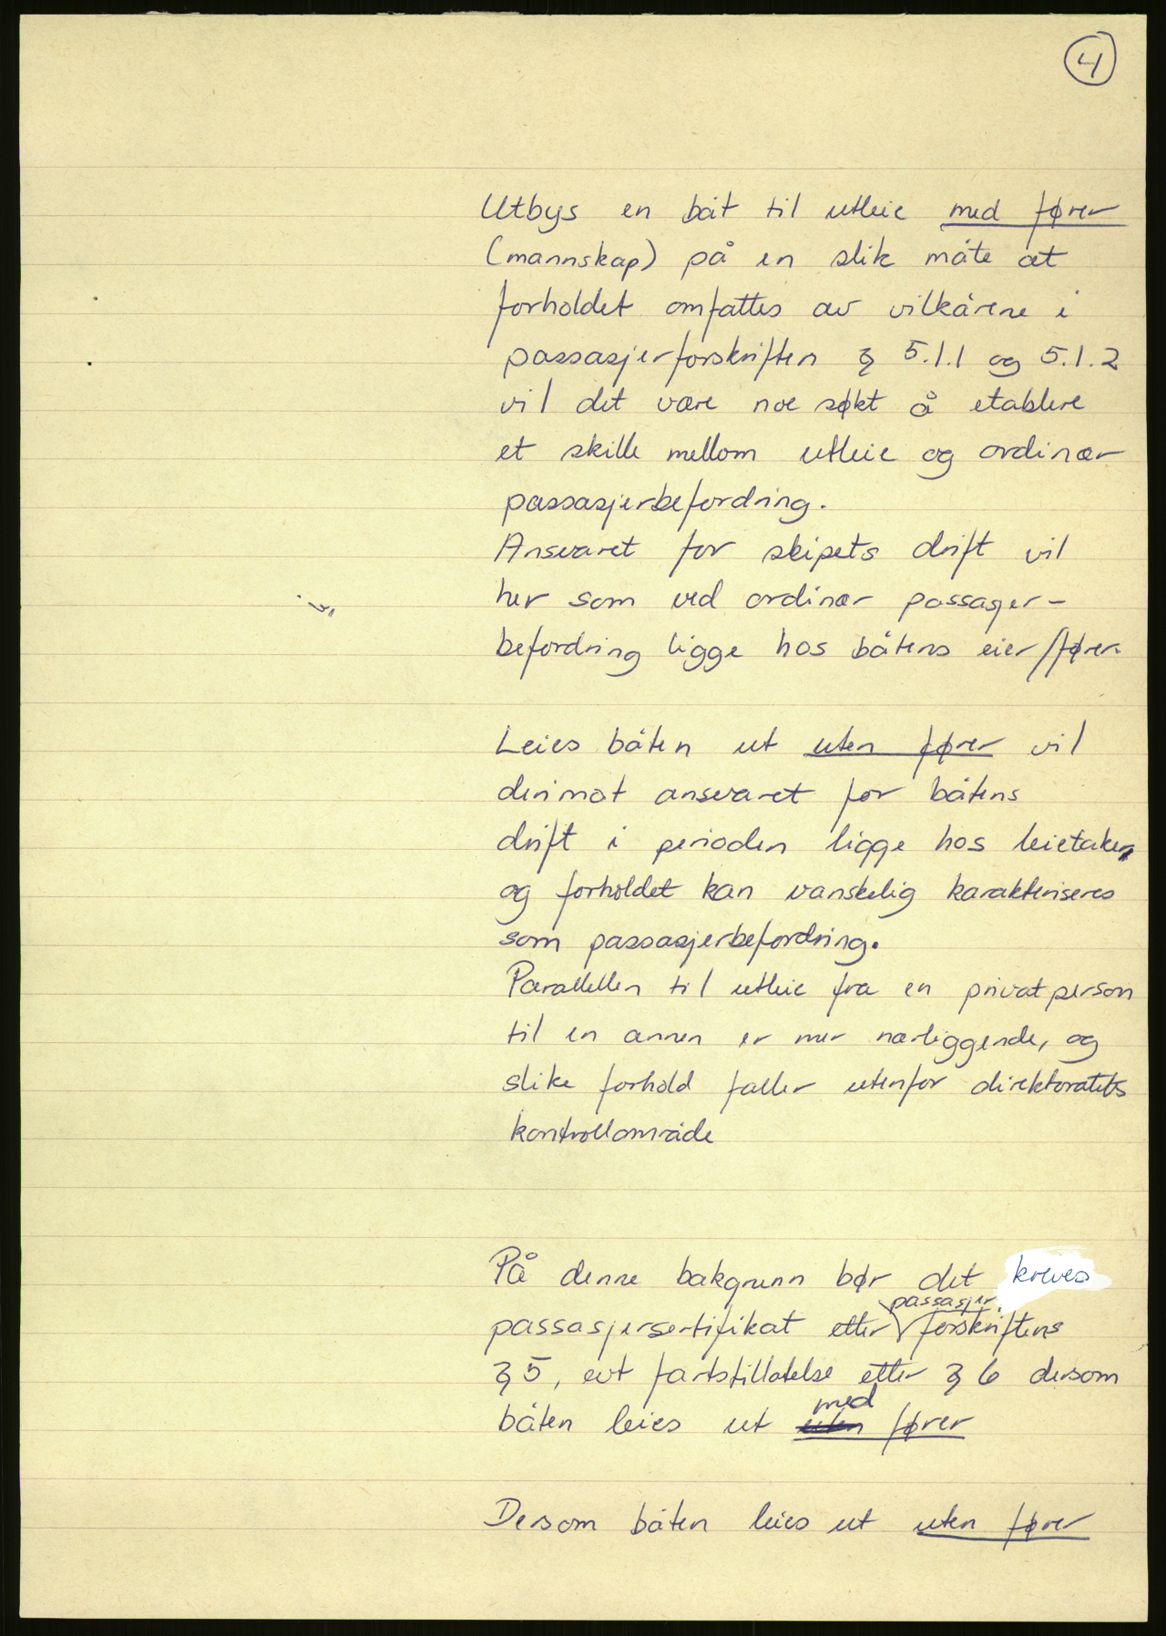 4
Utbys en båt til utleie med fører
(mannskap) på en slik måte at
forholdet omfattes av vilkårene i
passasjerforskriften § 5.1.1 og 5.1.2
vil det være noe søkt å etablere
et skille mellom utleie og ordinær
passasjerbefordring.
Ansvaret for skipets drift vil
her som ved ordinær passager-
befordring ligge hos båtens eier/fører.
Leies båten ut uten fører vil
derimot ansvaret for båtens
drift i perioden ligge hos leietaker,
og forholdet kan vanskelig karakteriseres
som passasjerbefordring.
Parallellen til utleie fra en privatperson
til en annen er mer nærliggende, og
slike forhold faller utenfor direktoratets
kontrollområde
På denne bakgrunn bør det kreves
passasjersertifikat etter passasjer.forskriftens
§ 5, evt fartstillatelse etter § 6 dersom
båten leies ut uten med fører
Dersom båten leies ut uten fører